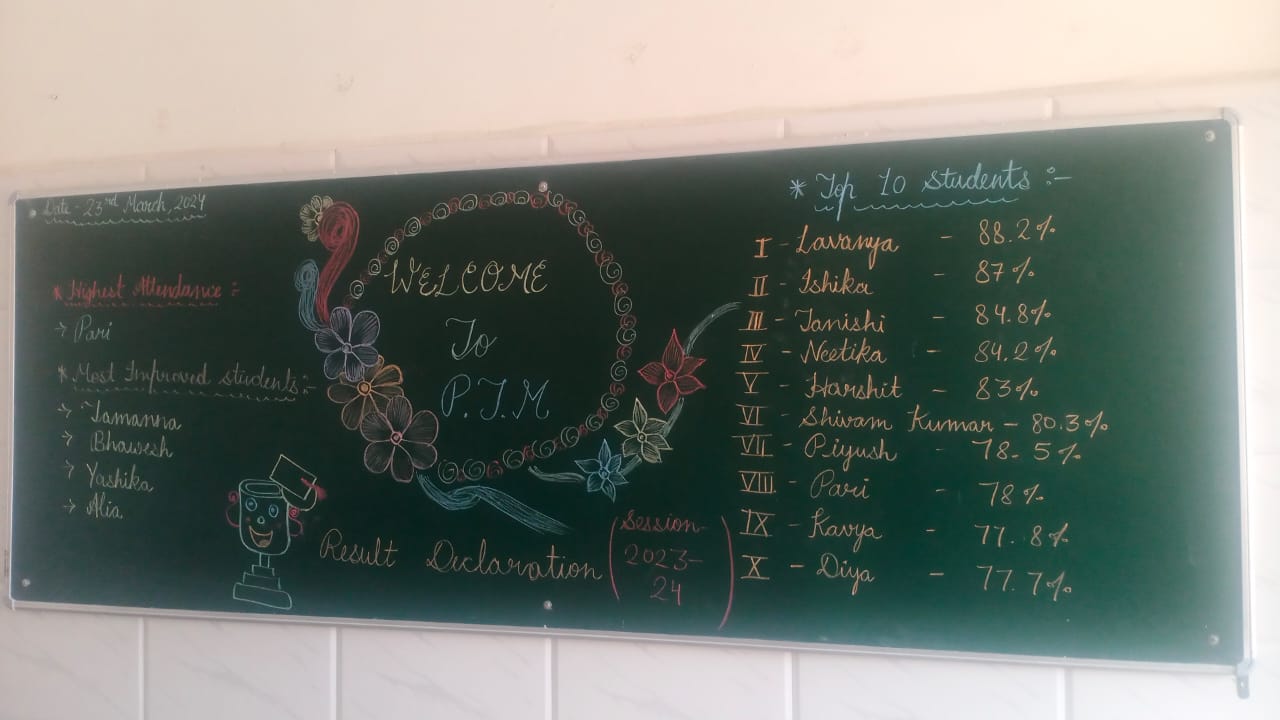 Date - 23rd March, 2024
* Highest Attendance :-
→ Pari
* Most Improved students:-
→ Tamanna
→ Bhawesh
→ Yashika
→ Alia
WELCOME
To
P.T.M
Result Declaration
(Session-
2023-
24)
* Top 10 students :-
I - Lavanya - 88.2%
II - Ishika - 87%
III - Tanishi - 84.8%
IV - Neetika - 84.2%
V - Harshit - 83%
VI - Shivam Kumar - 80.3%
VII - Piyush - 78.5%
VIII - Pari - 78%
IX - Kavya - 77.8%
X - Diya - 77.7%